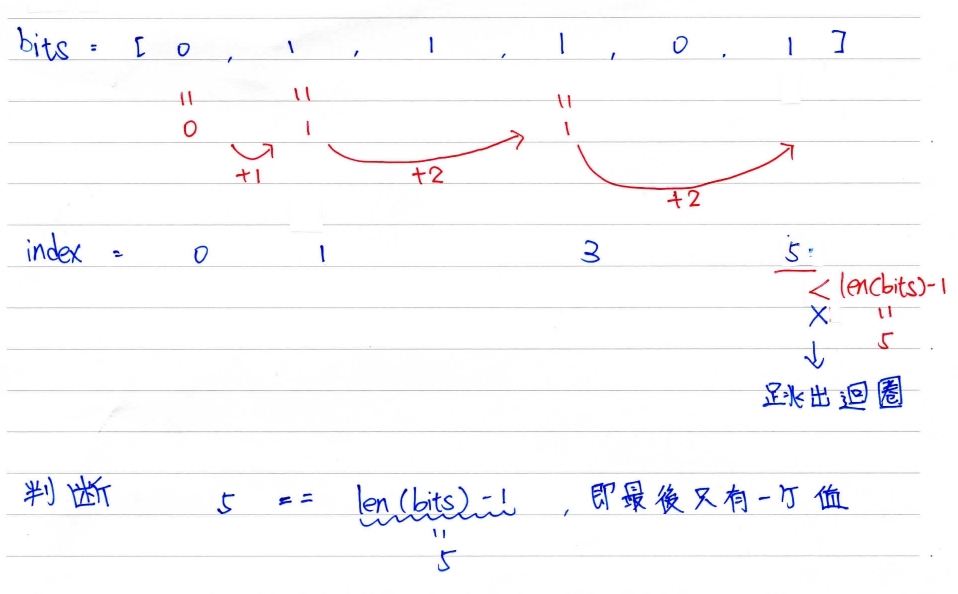 bits = [ 0 , 1 , 1 , 1 , 0 , 1 ]
" " "
0 1 1
+1 +2 +2
index = 0 1 3 5
< len(bits)-1
X "
↓ 5
跳出迴圈
判斷 5 == len(bits)-1 , 即最後只有一个值
"
5